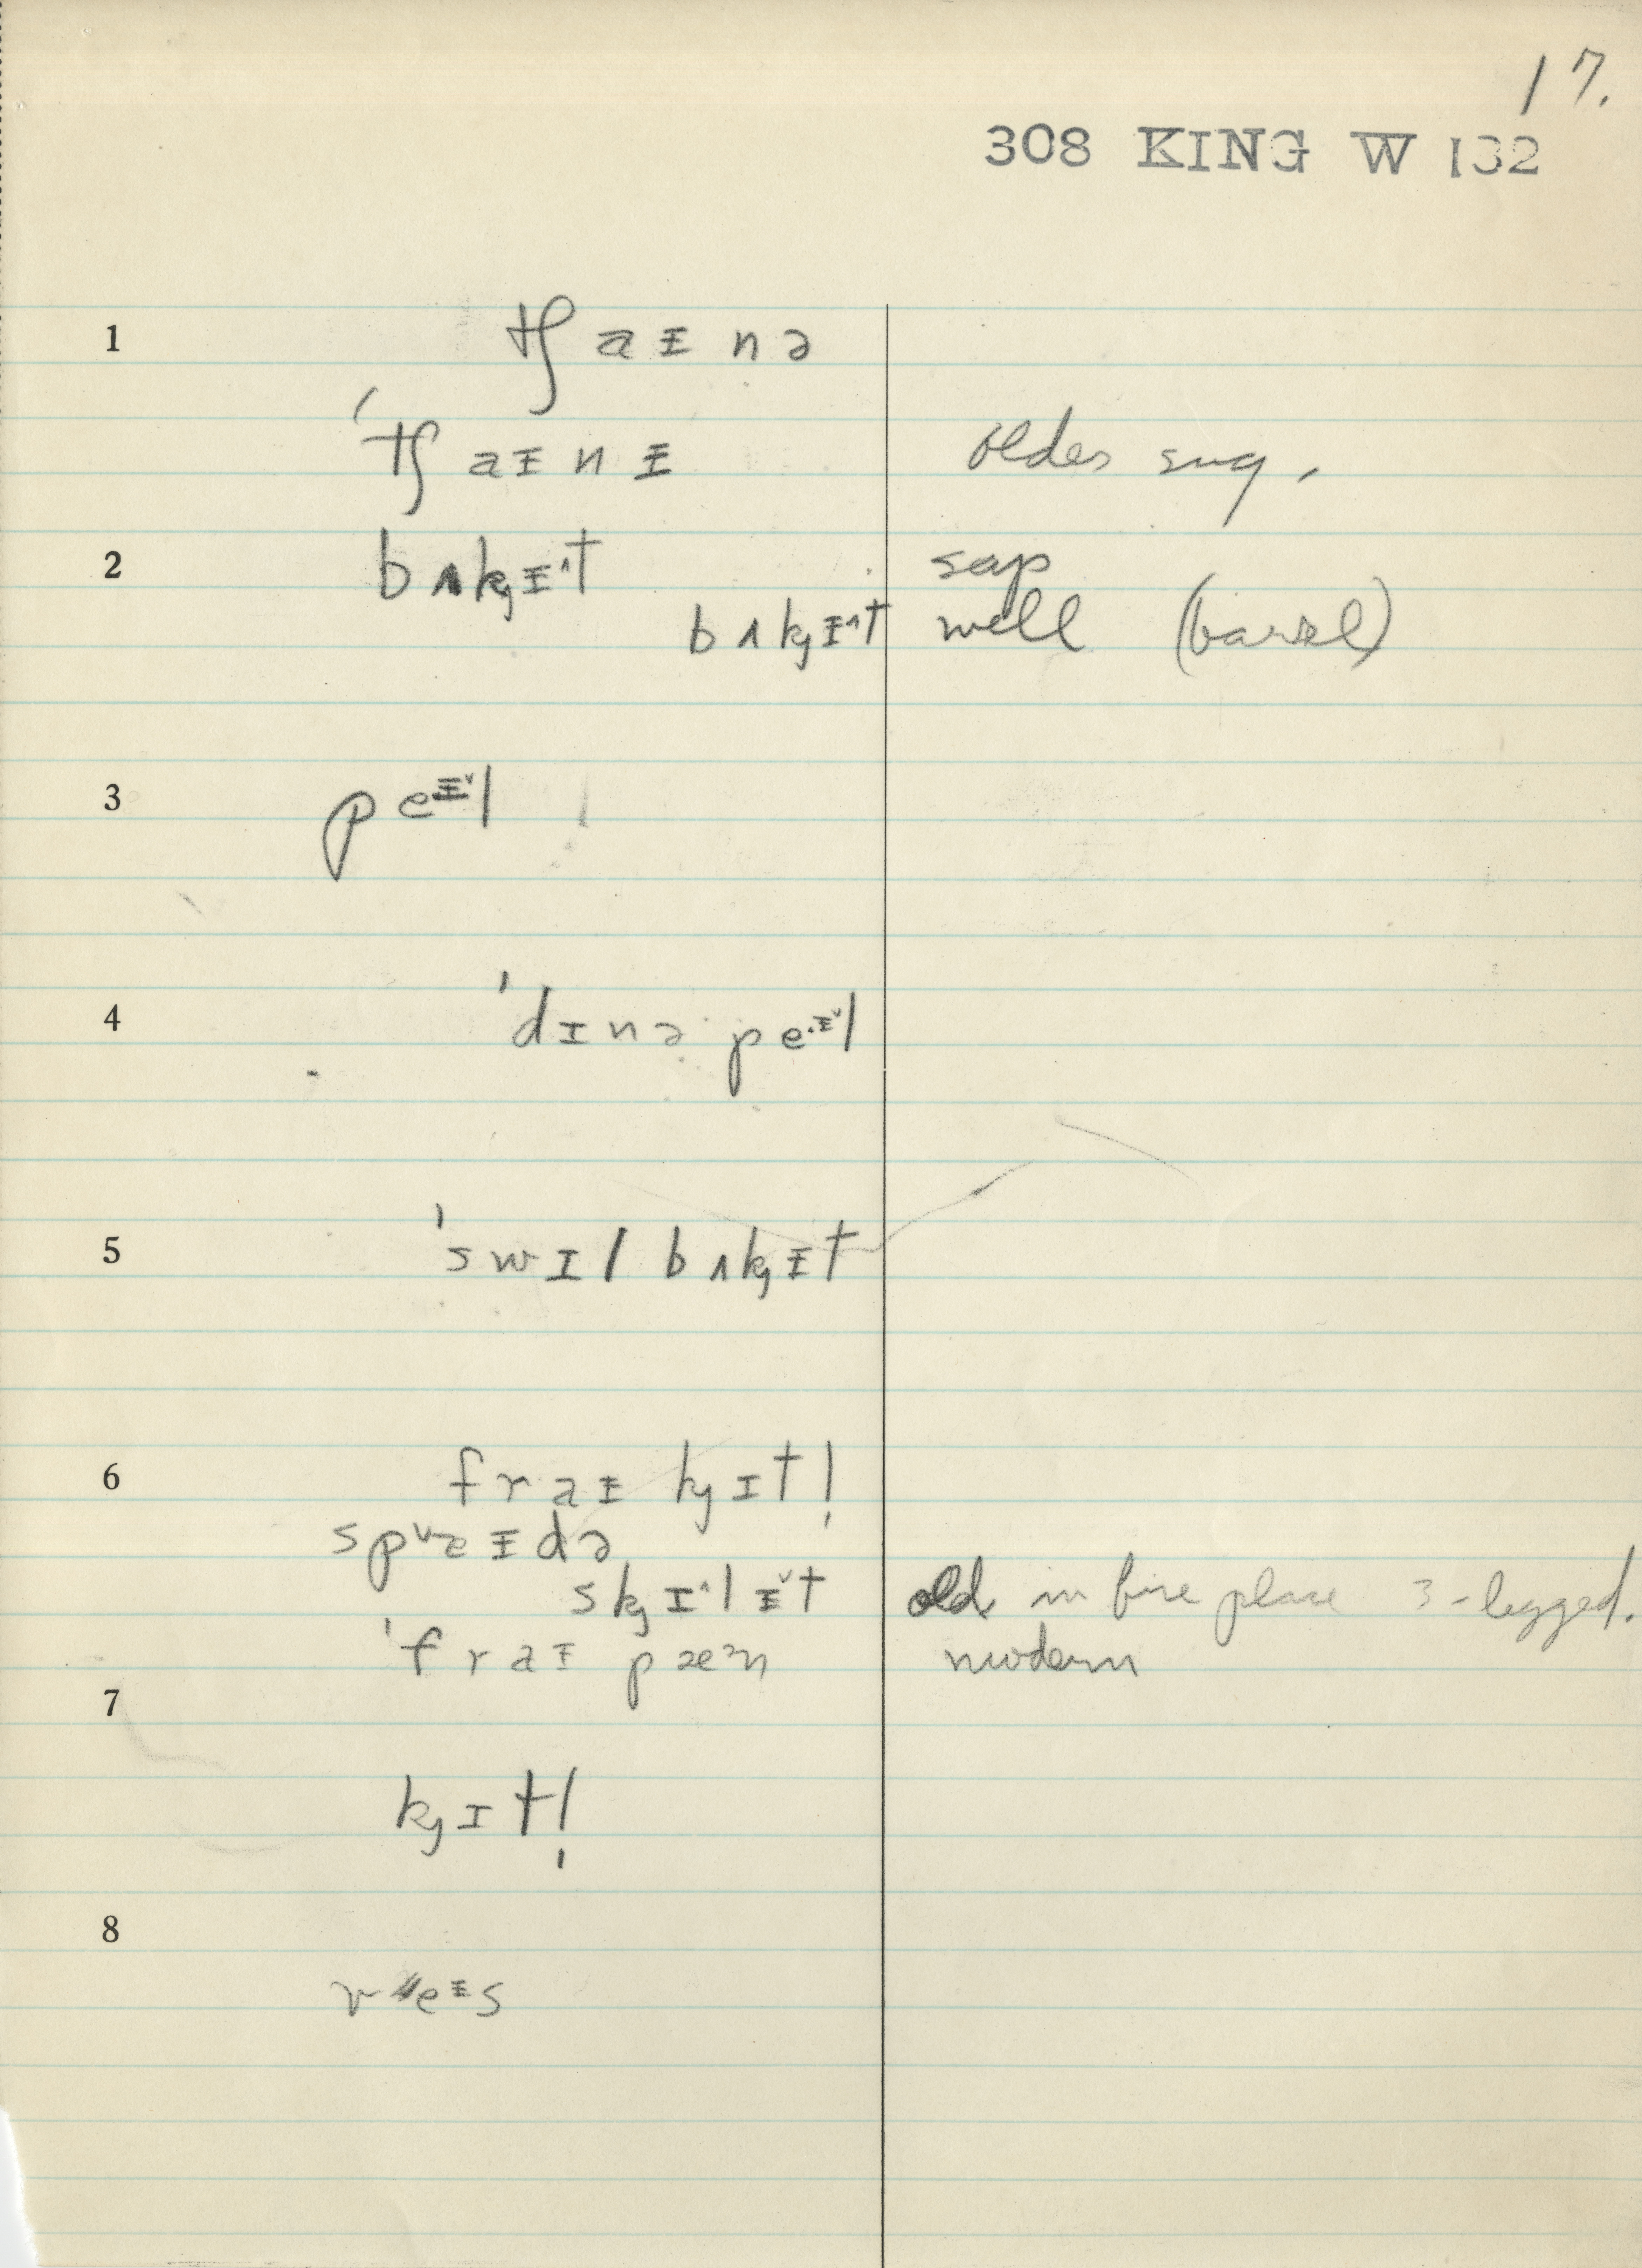 17.
308 KING W 132
1 tʃ a ᵻ n ə
ˈtʃ a ᵻ n ᵻ older sug.
2 b ʌ k̡ ᵻ˄ t sap
b ʌ k̡ ᵻ˄ t well (barrel)
3 p e ᵻ˅ l
4 ˈd ɪ n ə p e ᵻ˅ l
5 ˈs w ɪ l b ʌ k̡ ᵻ t
6 f r a ᵻ k̡ ɪ t l̩
s p ˅æ ᵻ d ə
s k̡ ɪ˄ l ᵻ˅ t old in fire place 3-legged.
ˈf r a ᵻ p æᵊ n modern
7
k̡ ɪ t l̩
8
v e ᵻ s